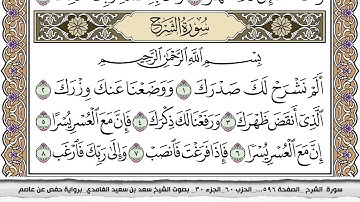 سُورَةُ الشَّرْحِ
بِسْمِ اللَّهِ الرَّحْمَٰنِ الرَّحِيمِ
أَلَمْ نَشْرَحْ لَكَ صَدْرَكَ ١ وَوَضَعْنَا عَنكَ وِزْرَكَ ٢
الَّذِي أَنقَضَ ظَهْرَكَ ٣ وَرَفَعْنَا لَكَ ذِكْرَكَ ٤ فَإِنَّ مَعَ الْعُسْرِ يُسْرًا ٥
إِنَّ مَعَ الْعُسْرِ يُسْرًا ٦ فَإِذَا فَرَغْتَ فَانصَبْ ٧ وَإِلَىٰ رَبِّكَ فَارْغَب ٨
سورة الشرح _الصفحة ٥٩٦_... الحزب ٦٠_الجزء ٣٠_ بصوت الشيخ سعد بن سعيد الغامدي _برواية حفص عن عاصم